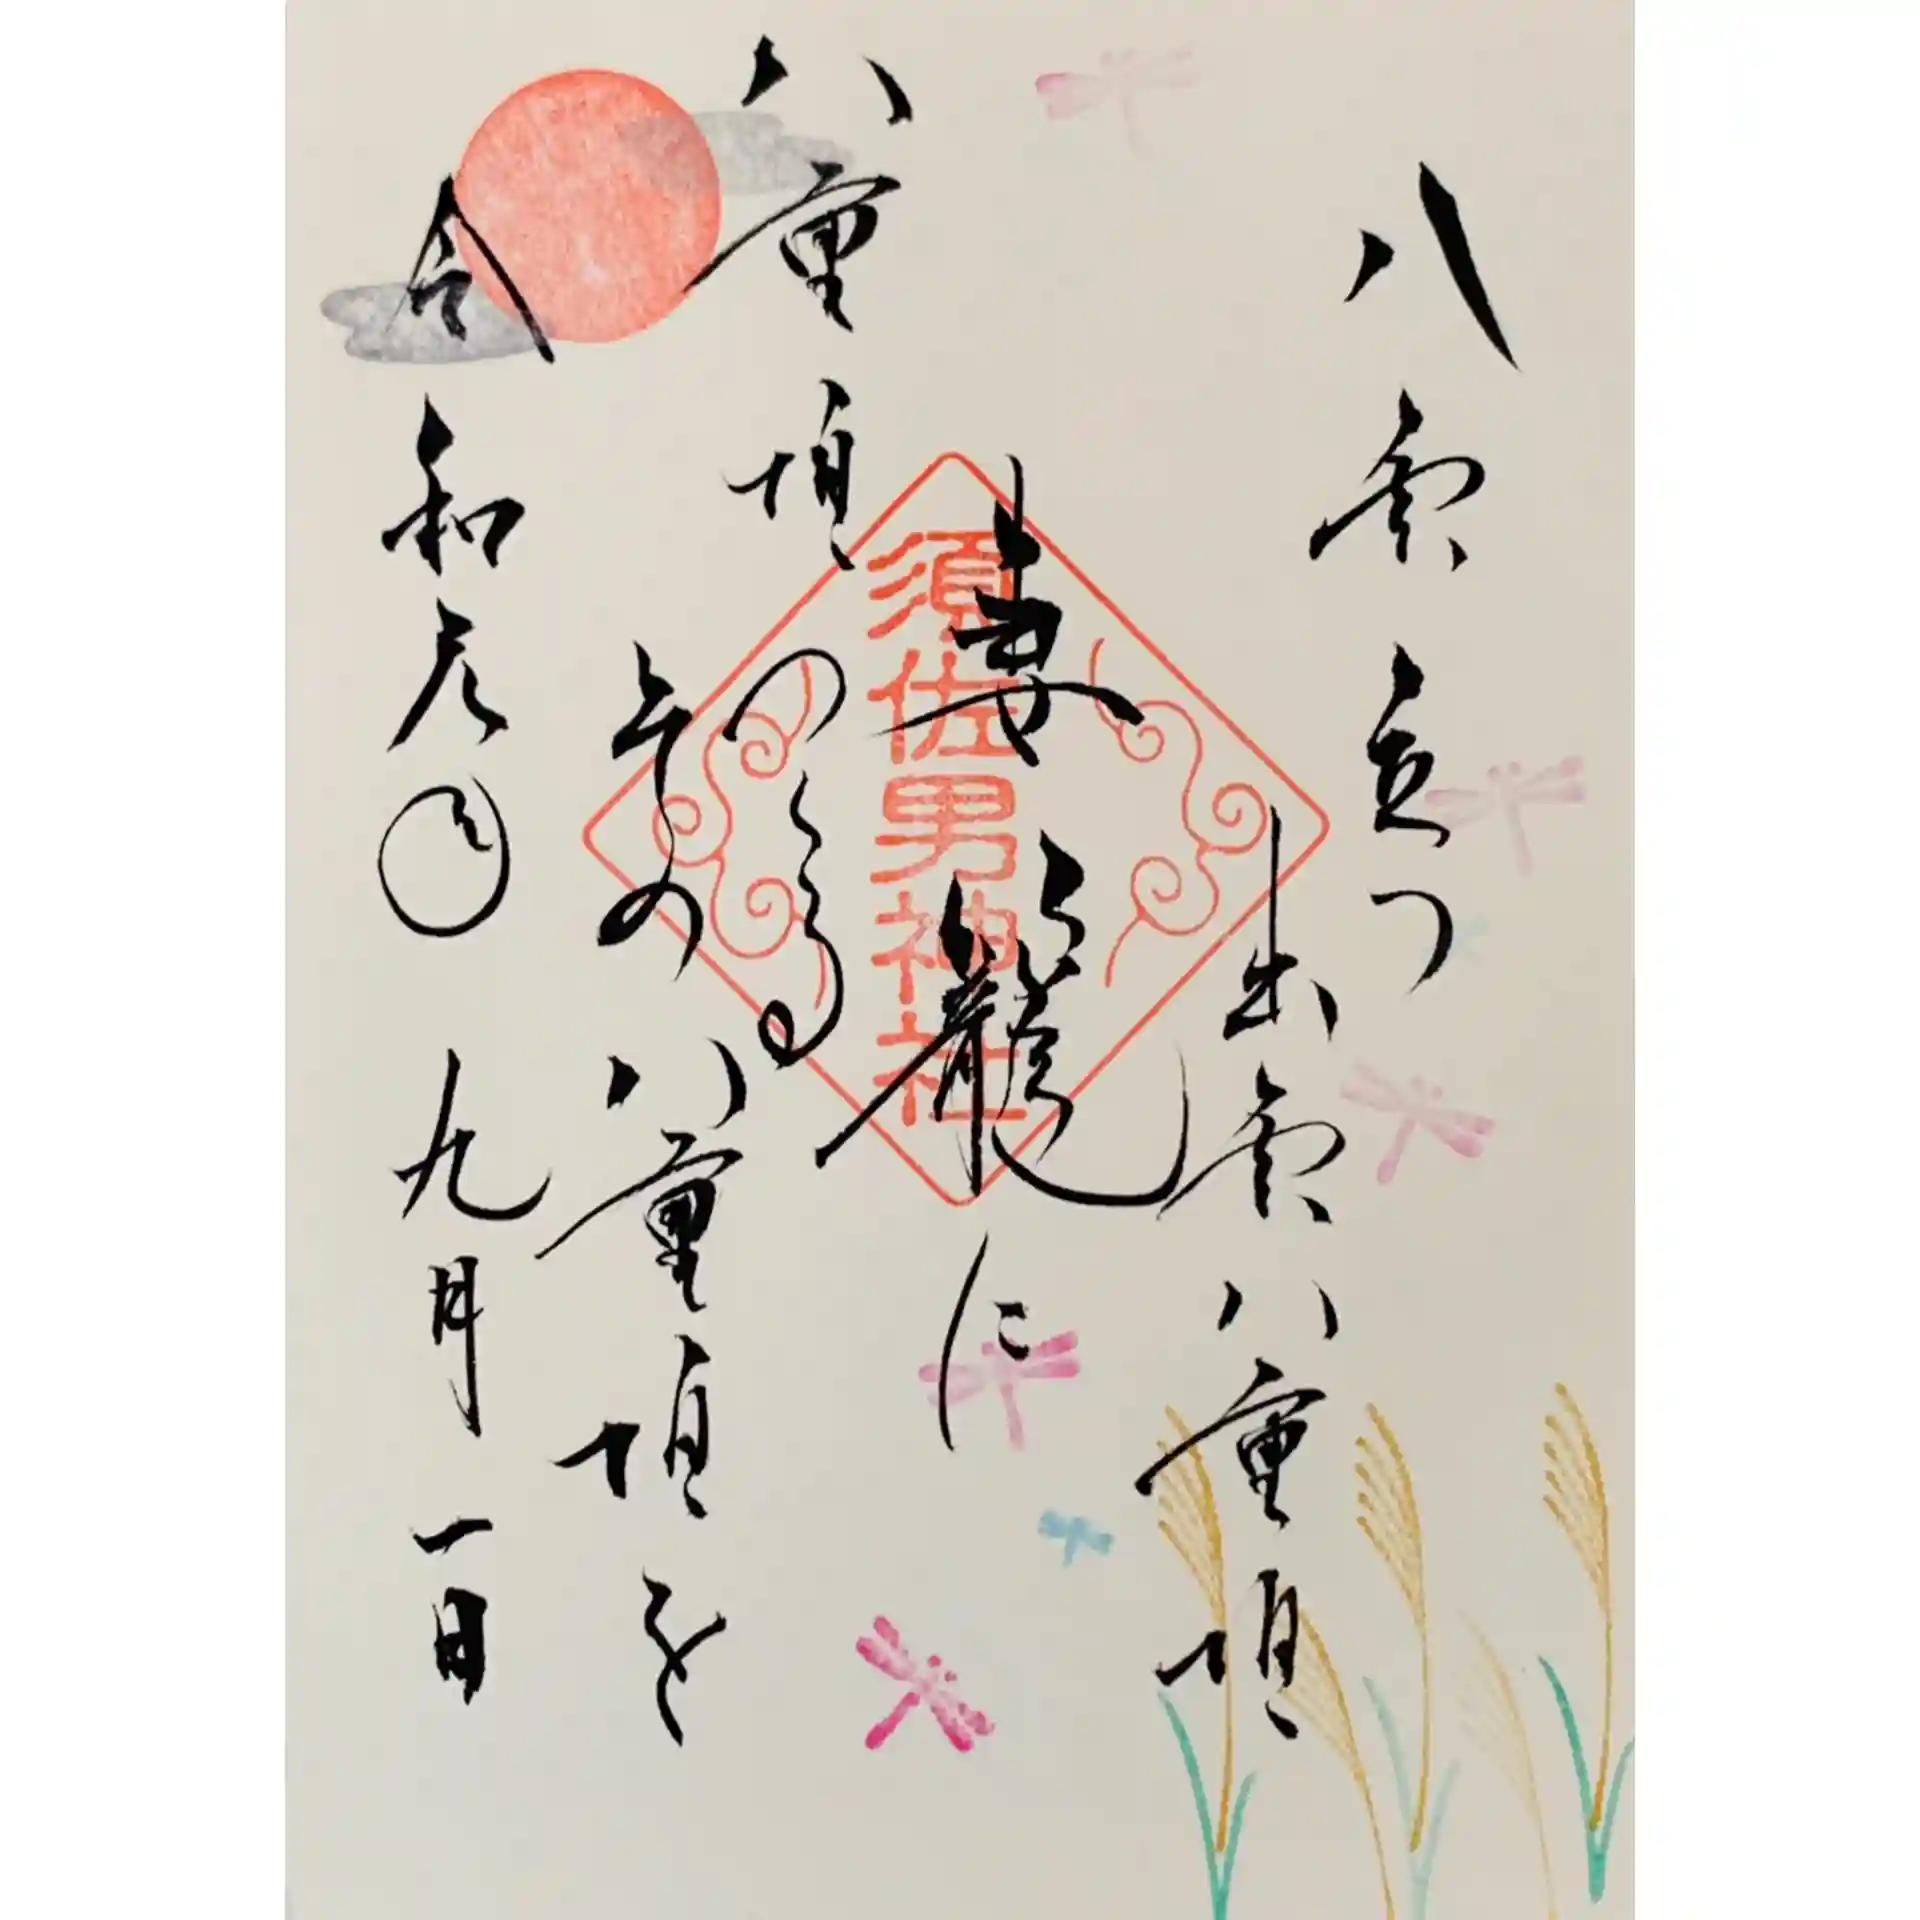 八雲立つ
出雲八重垣
妻籠に
八重垣
つくる
その
八重垣を
令和元年
九月一日
須佐男神社